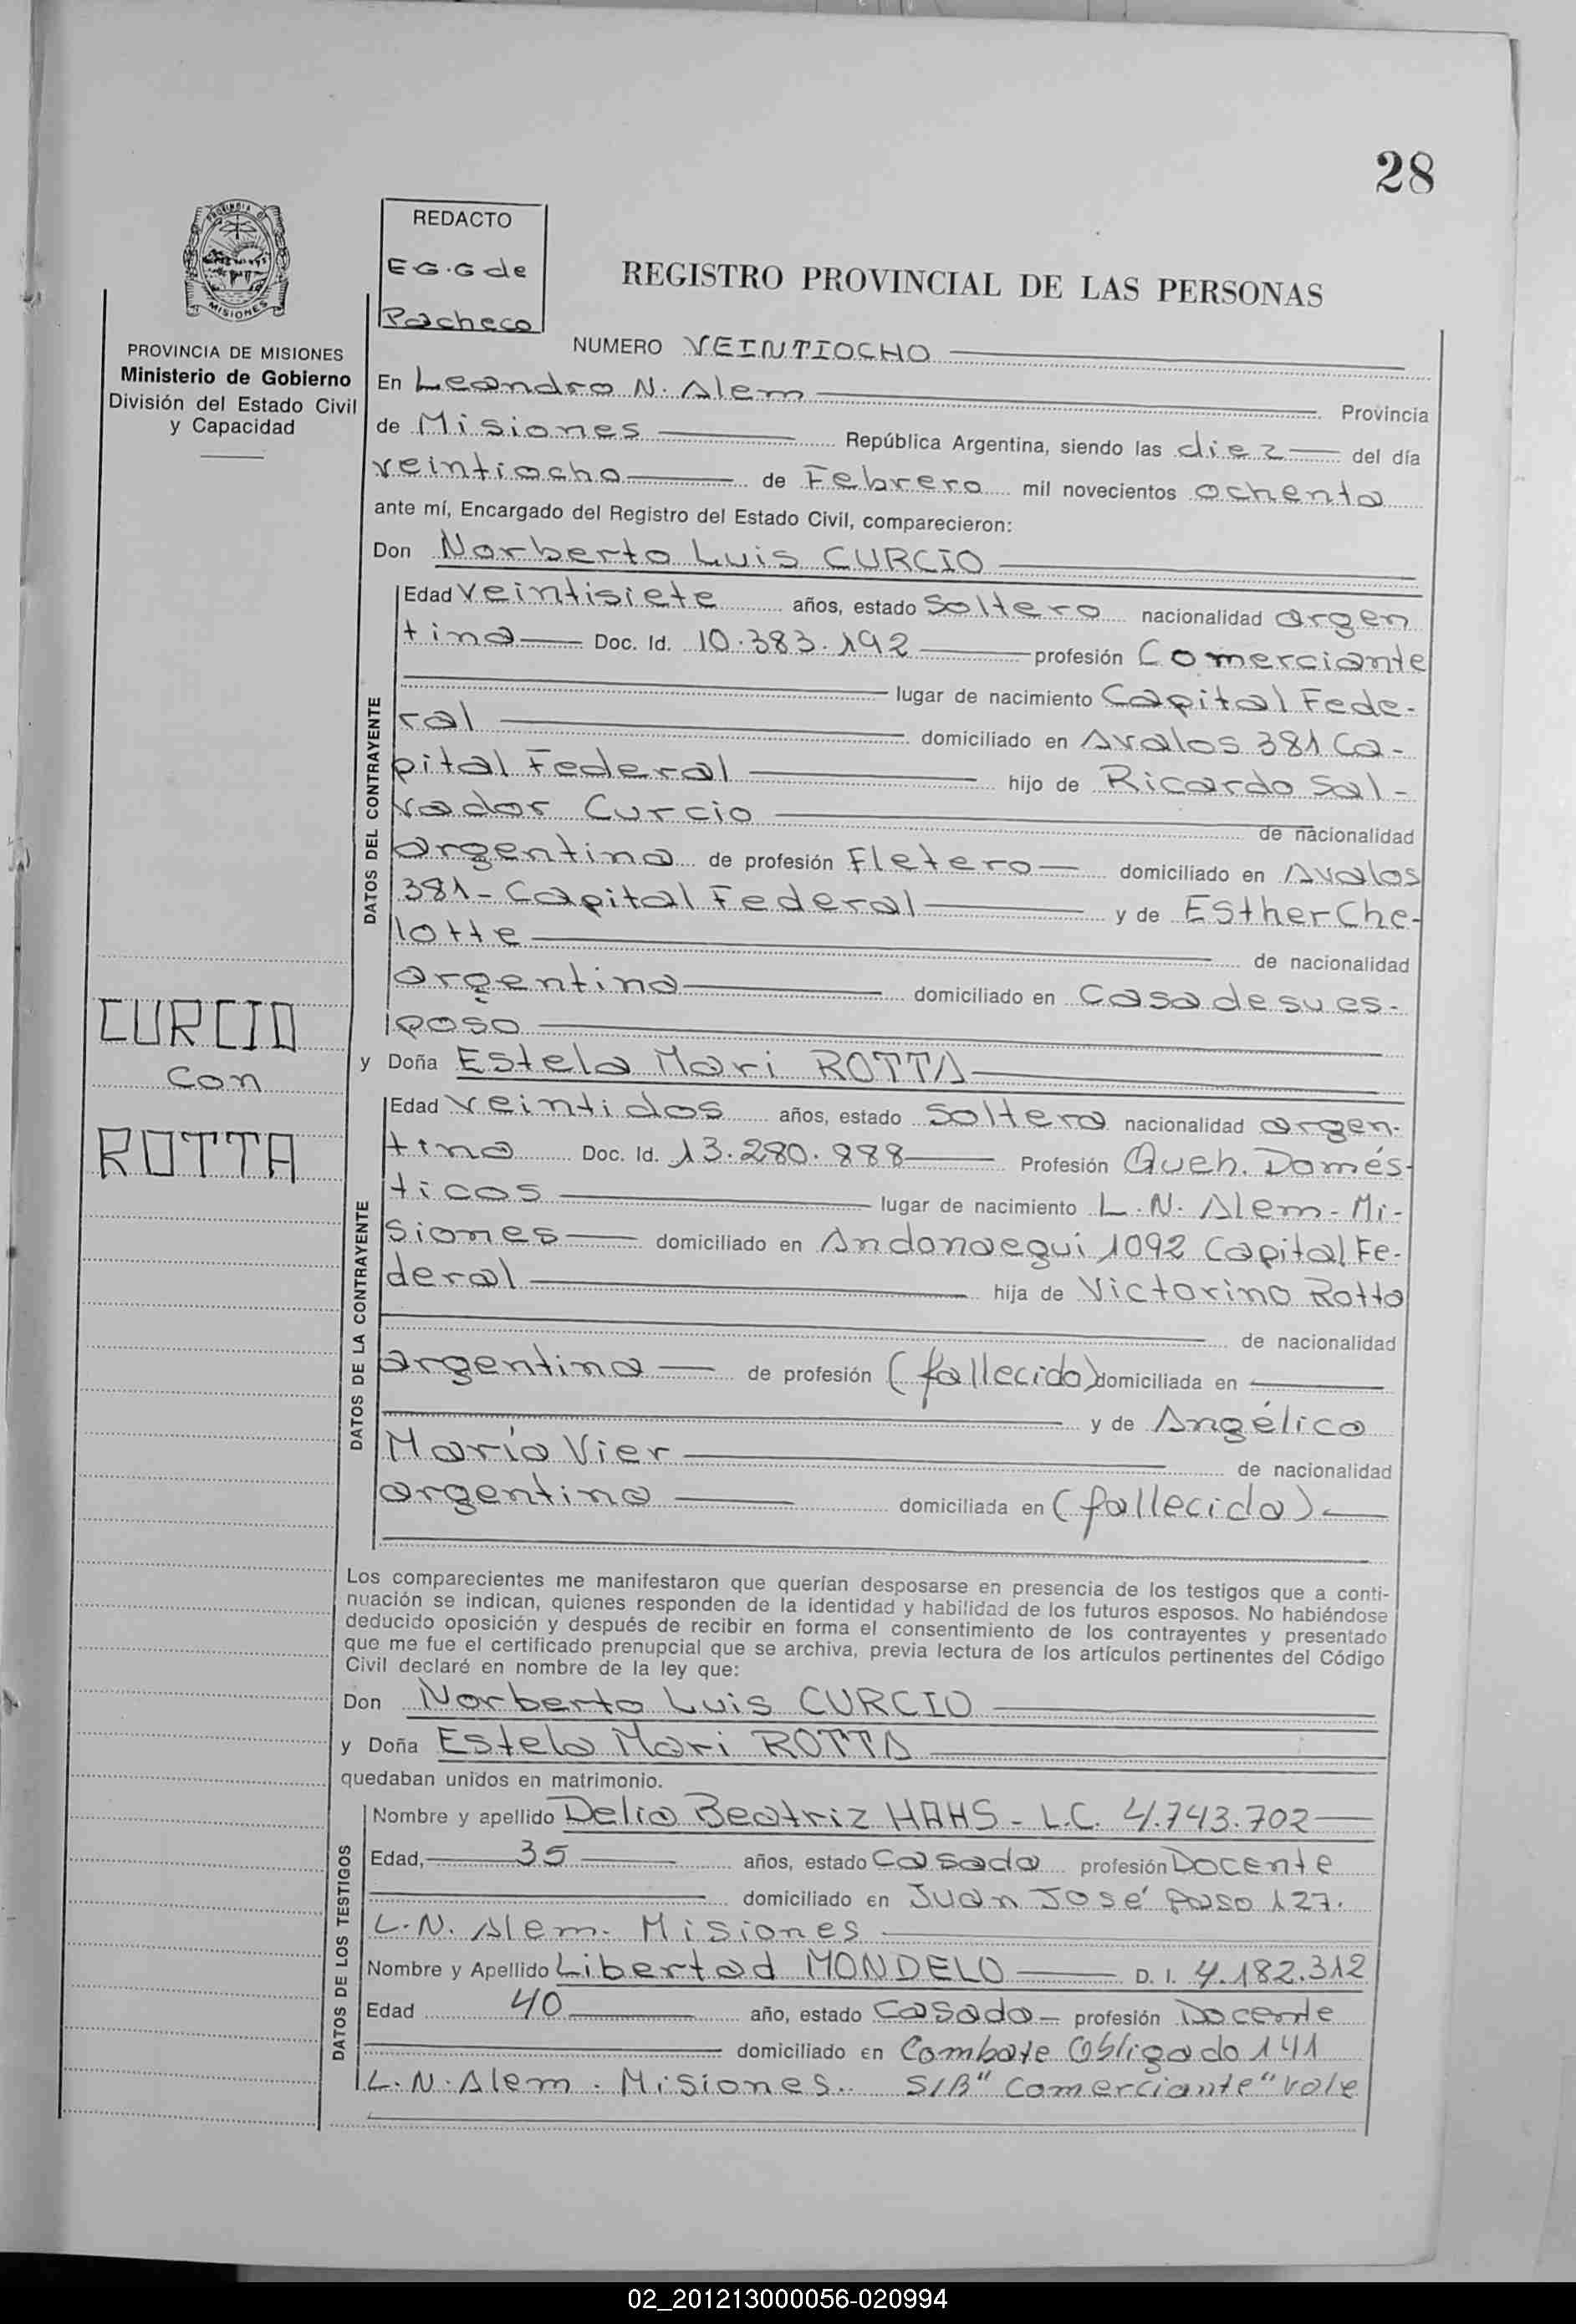 28
PROVINCIA DE
MISIONES
REDACTO
E.G.G de
Pacheco
REGISTRO PROVINCIAL DE LAS PERSONAS
PROVINCIA DE MISIONES
Ministerio de Gobierno
División del Estado Civil
y Capacidad
CURCIO
con
ROTTA
NUMERO VEINTIOCHO
En Leandro N. Alem Provincia
de Misiones República Argentina, siendo las diez del día
veintiocho de Febrero mil novecientos ochenta
ante mí, Encargado del Registro del Estado Civil, comparecieron:
Don Norberto Luis CURCIO
DATOS DEL CONTRAYENTE
Edad veintisiete años, estado soltero nacionalidad argen
tina Doc. Id. 10.383.192 profesión Comerciante
lugar de nacimiento Capital Fede-
ral domiciliado en Avalos 381 Ca-
pital Federal hijo de Ricardo Sal-
vador Curcio de nacionalidad
argentina de profesión Fletero domiciliado en Avalos
381 - Capital Federal y de Esther Che-
lotte de nacionalidad
argentina domiciliado en casa de su es-
poso
y Doña Estela Mari ROTTA
DATOS DE LA CONTRAYENTE
Edad veintidos años, estado soltera nacionalidad argen-
tina Doc. Id. 13.280.888 Profesión Queh. Domés-
ticos lugar de nacimiento L.N. Alem - Mi-
siones domiciliado en Andonaegui 1092 Capital Fe-
deral hija de Victorino Rotta
de nacionalidad
argentina de profesión (fallecido) domiciliada en
y de Angélica
María Vier de nacionalidad
argentina domiciliada en (fallecida)
Los comparecientes me manifestaron que querían desposarse en presencia de los testigos que a conti-
nuación se indican, quienes responden de la identidad y habilidad de los futuros esposos. No habiéndose
deducido oposición y después de recibir en forma el consentimiento de los contrayentes y presentado
que me fue el certificado prenupcial que se archiva, previa lectura de los artículos pertinentes del Código
Civil declaré en nombre de la ley que:
Don Norberto Luis CURCIO
y Doña Estela Mari ROTTA
quedaban unidos en matrimonio.
DATOS DE LOS TESTIGOS
Nombre y apellido Delia Beatriz HAHS - L.C. 4.743.702
Edad, 35 años, estado Casada profesión Docente
domiciliado en Juan José Paso 127.
L.N. Alem - Misiones
Nombre y Apellido Libertad MONDELO D. I. 4.182.312
Edad 40 año, estado Casada profesión Docente
domiciliado en Combate Obligado 141
L.N. Alem - Misiones. S/B "comerciante" vale
02_201213000056-020994